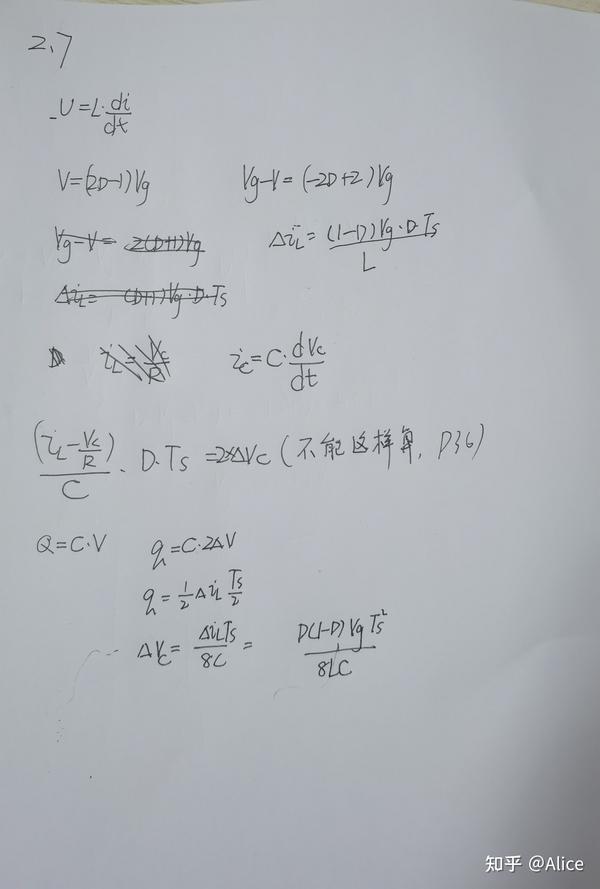 2.7
U=L·di/dt
V=(2D-1)Vg Vg-V=(-2D+2)Vg
Vg-V= 2(D+1)Vg ΔiL=(1-D)Vg·D·Ts/L
ΔiL= (D+1)Vg·D·Ts
iL=Vc/R ic=C·dVc/dt
(iL-Vc/R)/C·D·Ts=2×ΔVc(不能这样算,P36)
Q=C·V q=C·2ΔV
q=1/2ΔiL Ts/2
ΔVc=ΔiLTs/8C= D(1-D)VgTs²/8LC
知乎 @Alice